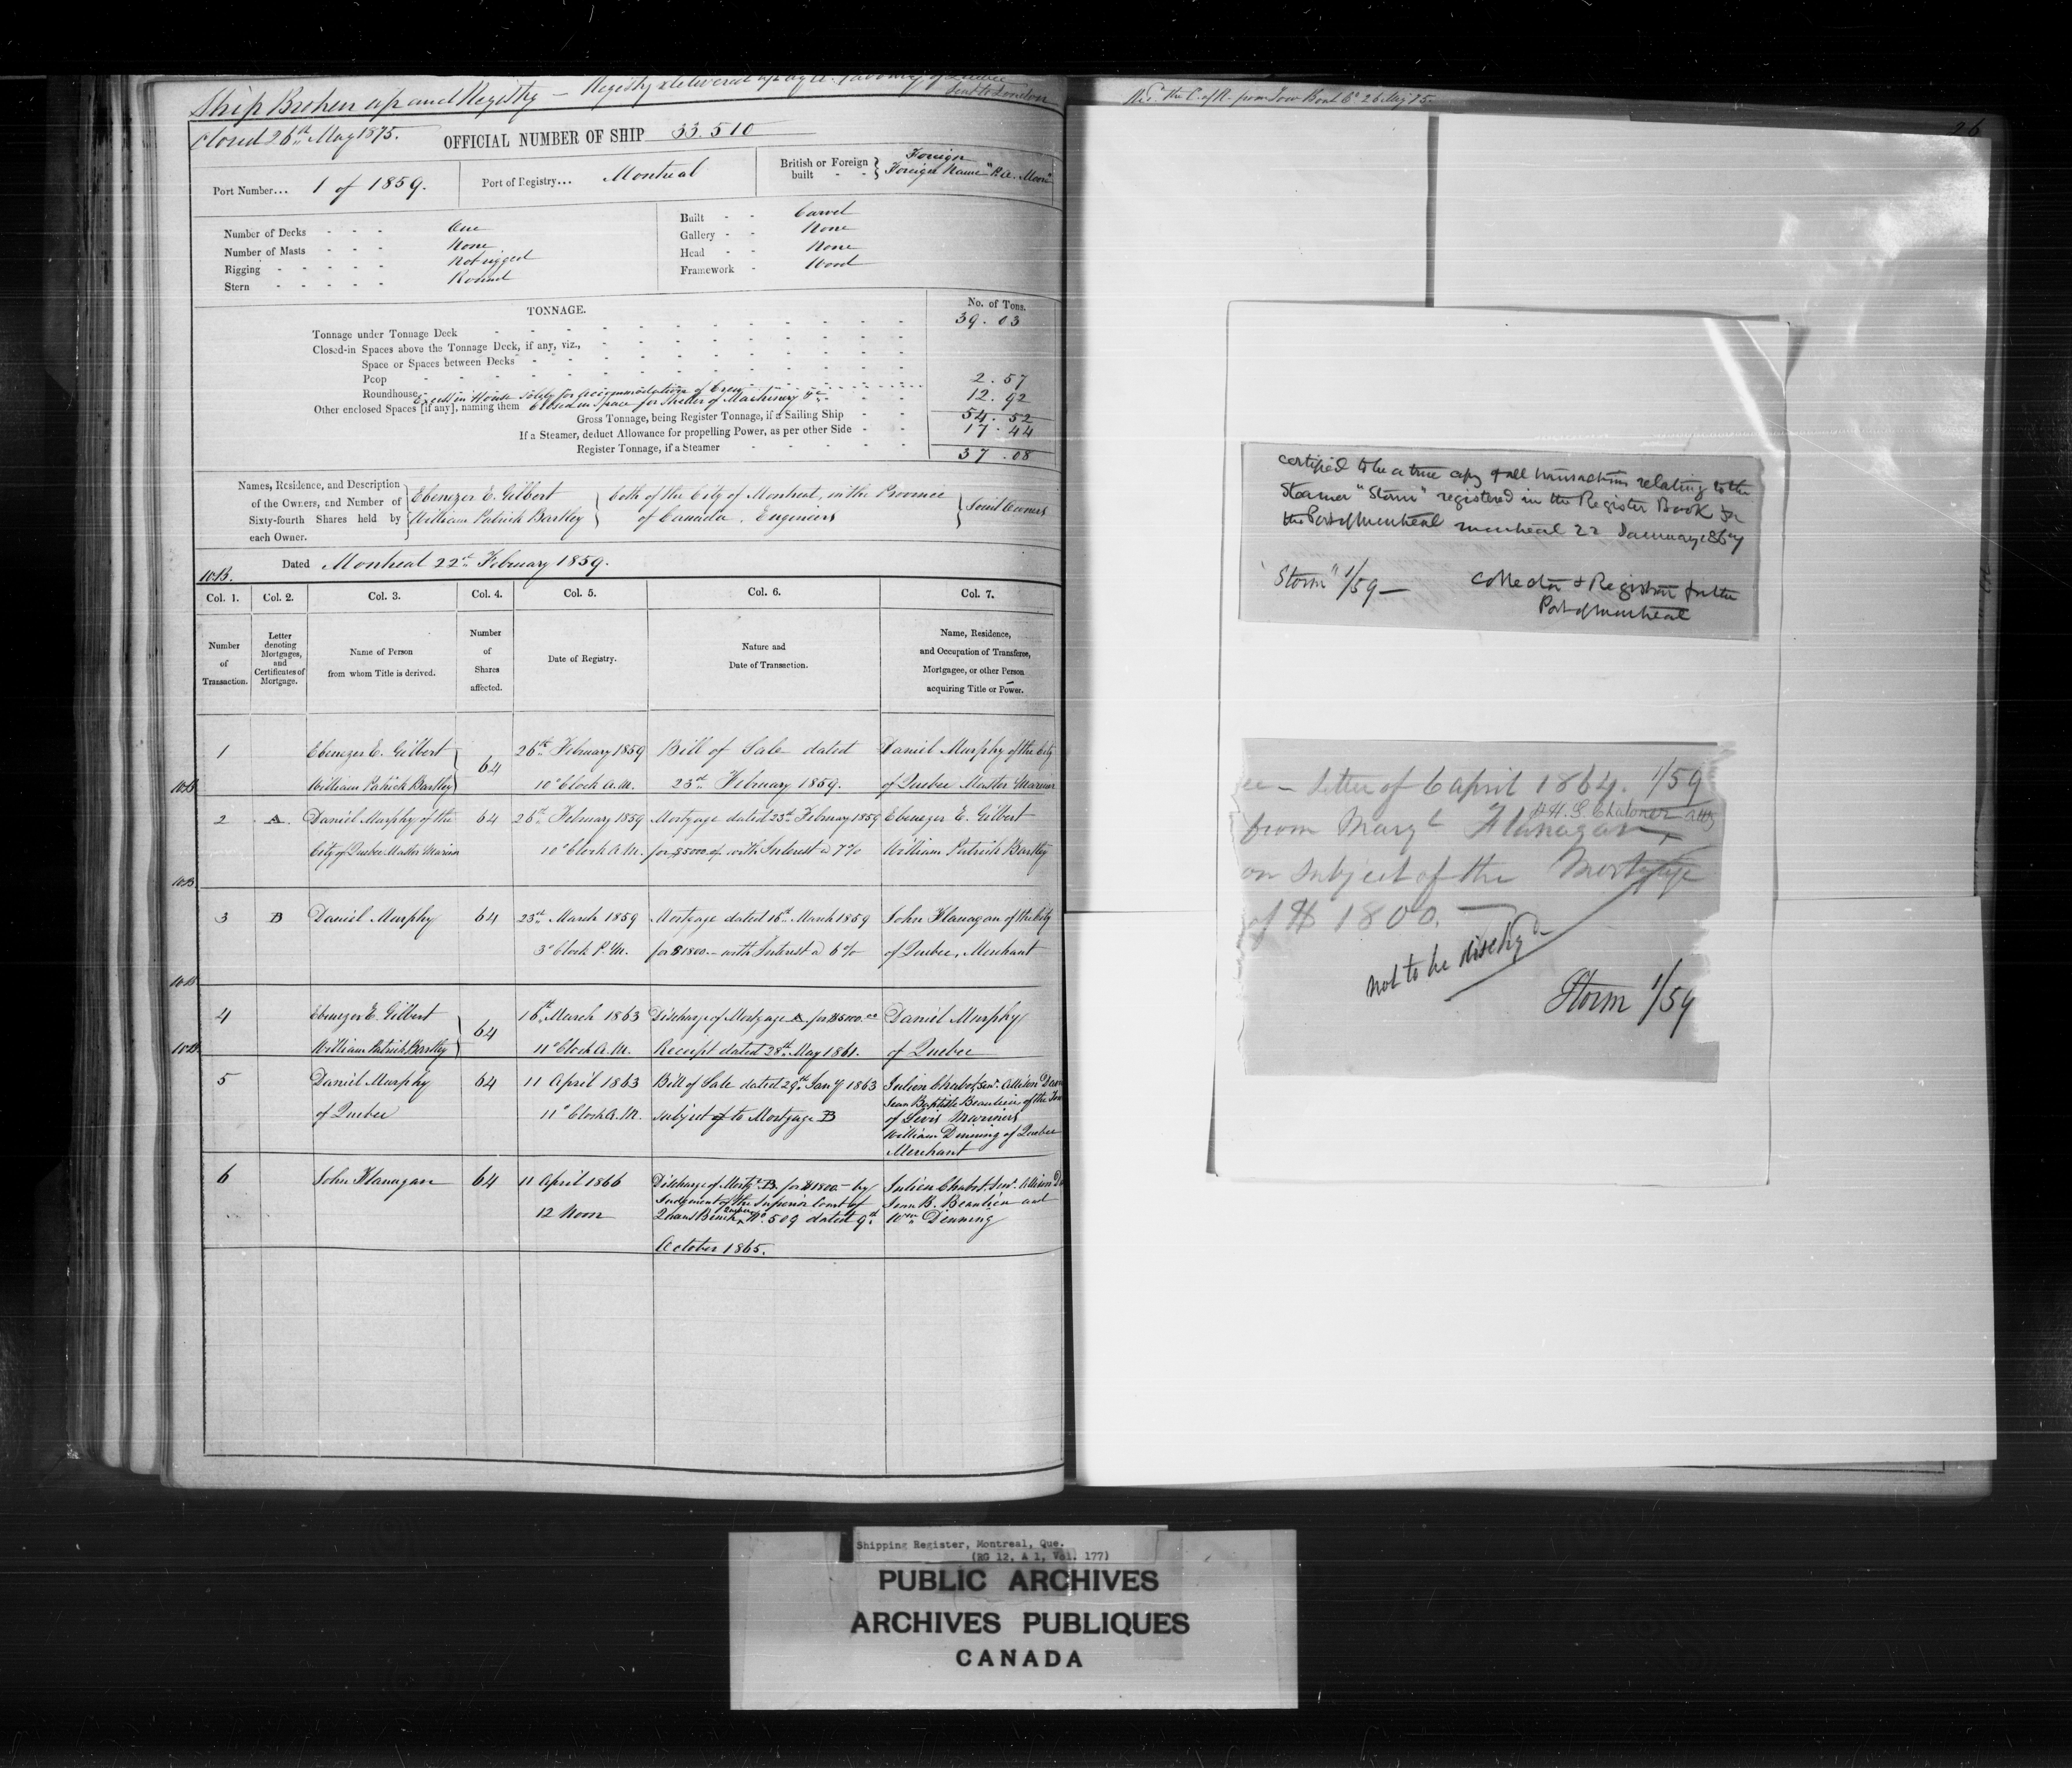 Ship Broken up and Registry — Registry delivered up
Sent to London
Closed 26th May 1875.
OFFICIAL NUMBER OF SHIP 33.510
Port Number... 1 of 1859.
Port of Registry... Montreal
British or Foreign built - - } Foreign
Foreign Name
Number of Decks - - - One
Number of Masts - - - None
Rigging - - - - - Not rigged
Stern - - - - - Round
Built - - Carvel
Gallery - - None
Head - - None
Framework - Wood
TONNAGE.
No. of Tons.
Tonnage under Tonnage Deck 39.03
Closed-in Spaces above the Tonnage Deck, if any, viz.,
Space or Spaces between Decks
Poop
Roundhouse Excess in House solely for accommodation of Crew 2.57
Other enclosed Spaces [if any], naming them Closed in space for shelter of Machinery &c 12.92
Gross Tonnage, being Register Tonnage, if a Sailing Ship - - 54.52
If a Steamer, deduct Allowance for propelling Power, as per other Side - - 17.44
Register Tonnage, if a Steamer 37.08
Names, Residence, and Description
of the Owners, and Number of
Sixty-fourth Shares held by
each Owner.
Ebenezer E. Gilbert
William Patrick Bartley
both of the City of Montreal, in the Province
of Canada. Engineers
Joint Owners
Dated Montreal 22nd February 1859.
Col. 1.
Col. 2.
Col. 3.
Col. 4.
Col. 5.
Col. 6.
Col. 7.
Number
of
Transaction.
Letter
denoting
Mortgages,
and
Certificates of
Mortgage.
Name of Person
from whom Title is derived.
Number
of
Shares
affected.
Date of Registry.
Nature and
Date of Transaction.
Name, Residence,
and Occupation of Transferee,
Mortgagee, or other Person
acquiring Title or Power.
1
Ebenezer E. Gilbert
William Patrick Bartley
64
26th February 1859
10 o'Clock A.M.
Bill of Sale dated
23rd February 1859.
Daniel Murphy of the City
of Quebec Master Mariner
2
A.
Daniel Murphy of the
City of Quebec Master Mariner
64
26th February 1859
10 o'Clock A.M.
Mortgage dated 23rd February 1859
for $5000.00 with Interest @ 7%
Ebenezer E. Gilbert
William Patrick Bartley
3
B
Daniel Murphy
64
23rd March 1859
3 o'Clock P.M.
Mortgage dated 16th March 1859
for $1800.— with Interest @ 6%
John Flanagan of the City
of Quebec, Merchant
4
Ebenezer E. Gilbert
William Patrick Bartley
64
16th March 1863
11 o'Clock A.M.
Discharge of Mortgage A. for $5000.00
Receipt dated 28th May 1861.
Daniel Murphy
of Quebec
5
Daniel Murphy
of Quebec
64
11 April 1863
11 o'Clock A.M.
Bill of Sale dated 29th Jany 1863
subject to Mortgage B
Julien Chabot, Senr. Allison
Jean Baptiste Beaulieu of the
of Levis Mariners
William Dinning of Quebec
Merchant
6
John Flanagan
64
11 April 1866
12 Noon
Discharge of Mortge B. for $1800.— by
Judgement of the Superior Court of
Queens Bench No. 509 dated 9th
October 1865.
Julien Chabot, Senr. Allison
Jean B. Beaulieu and
Wm Dinning
Recd. the C. of R. from Tow Boat Co. 26 May 75.
26
certified to be a true copy of all transactions relating to the
Steamer "Storm" registered in the Register Book for
the Port of Montreal Montreal 22 January 1867
"Storm" 1/59 —
Collector & Registrar for the
Port of Montreal
letter of 6 April 1864. 1/59
H.S. Chaloner Atty
from Margt Flanagan
on subject of the Mortgage
of $ 1800. —
not to be dischgd
Storm 1/59
Shipping Register, Montreal, Que.
(RG 12, A 1, Vol. 177)
PUBLIC ARCHIVES
ARCHIVES PUBLIQUES
CANADA